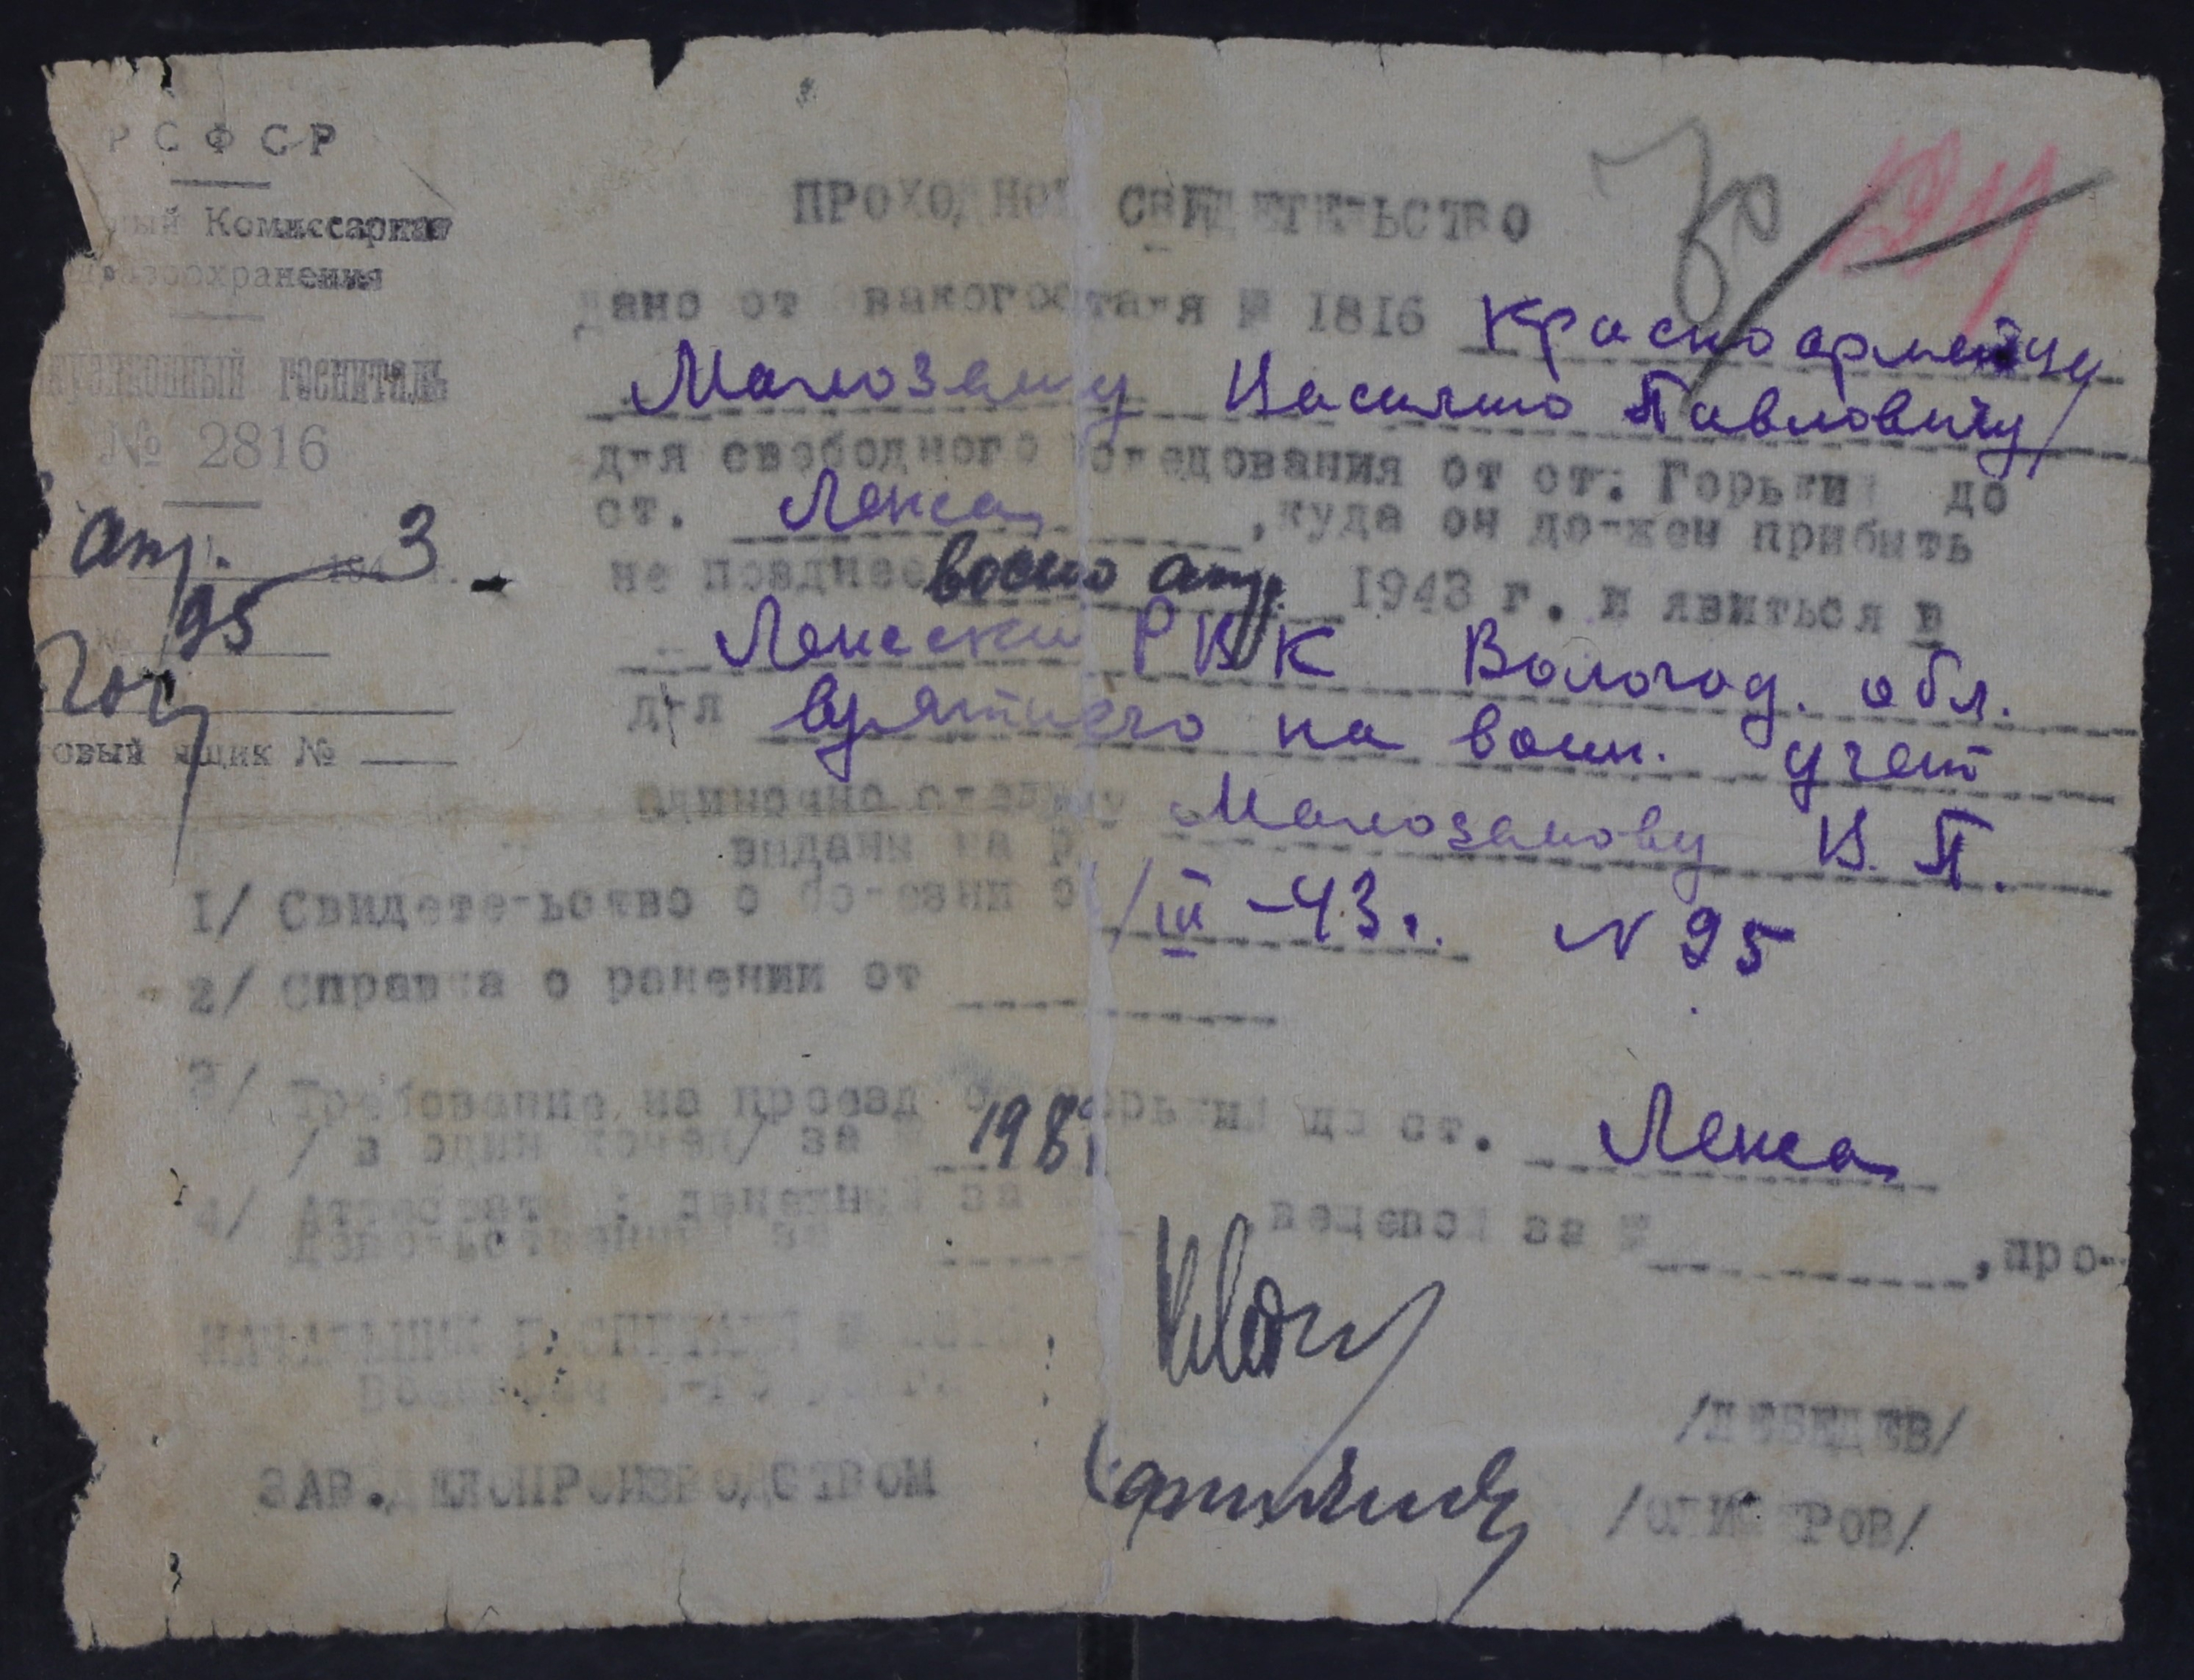 РСФСР
ный Комиссариат
дравоохранения
эвакуационный госпиталь
№ 2816
апр. 194 3
№ 95
Гор
овый ящик №
ПРОХОДНОЕ СВИДЕТЕЛЬСТВО
Дано от эвакогоспиталя № 1816 красноармейцу
Василию Павловичу
для свободного следования от ст. Горький до
ст. Ленса, куда он должен прибыть
не позднее апр. 1943 г. и явиться в
Ленский РВК Вологод. обл.
для на воин. учет
Одиночно следу
выданы на р
В. П.
1/ Свидетельство о болезни от /III-43г. N 95
2/ Справка о ранении от
3/ Требование на проезд от Горький до ст. Ленса
/ в один конец/ за № 198
4/ Аттестаты: денежный за , вещевой за № , про-
довольственный за
НАЧАЛЬНИК ГОСПИТАЛЯ №
Военврач ранга /ЛЕБЕДЕВ/
ЗАВ. ДЕЛОПРОИЗВОДСТВОМ